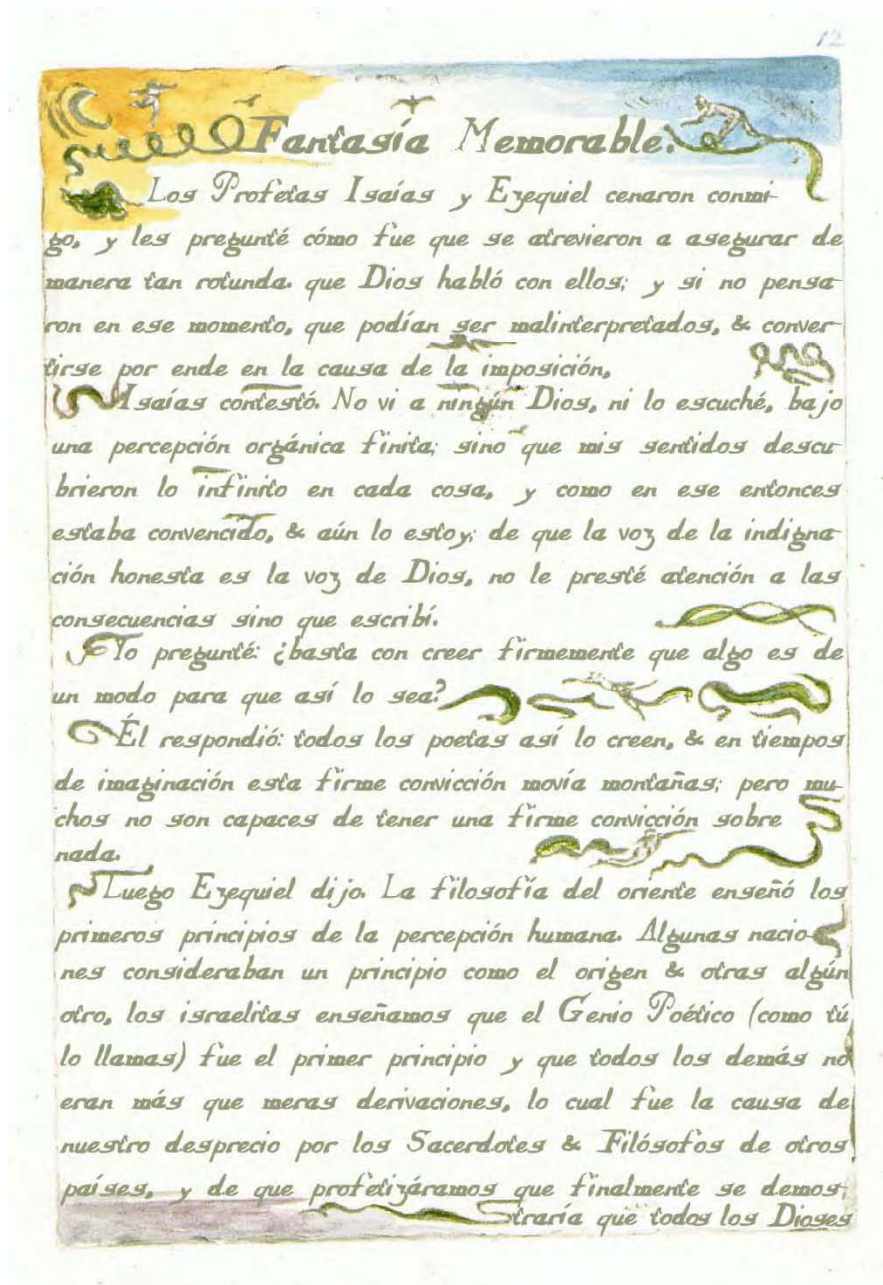 12
Fantasía Memorable.
Los Profetas Isaías y Ezequiel cenaron conmi-
go, y les pregunté cómo fue que se atrevieron a asegurar de
manera tan rotunda. que Dios habló con ellos; y si no pensa-
ron en ese momento, que podían ser malinterpretados, & conver-
tirse por ende en la causa de la imposición,
Isaías contestó. No vi a ningún Dios, ni lo escuché, bajo
una percepción orgánica finita; sino que mis sentidos descu-
brieron lo infinito en cada cosa, y como en ese entonces
estaba convencido, & aún lo estoy; de que la voz de la indigna-
ción honesta es la voz de Dios, no le presté atención a las
consecuencias sino que escribí.
Yo pregunté: ¿basta con creer firmemente que algo es de
un modo para que así lo sea?
Él respondió: todos los poetas así lo creen, & en tiempos
de imaginación esta firme convicción movía montañas; pero mu-
chos no son capaces de tener una firme convicción sobre
nada.
Luego Ezequiel dijo. La filosofía del oriente enseñó los
primeros principios de la percepción humana. Algunas nacio-
nes consideraban un principio como el origen & otras algún
otro, los israelitas enseñamos que el Genio Poético (como tú
lo llamas) fue el primer principio y que todos los demás no
eran más que meras derivaciones, lo cual fue la causa de
nuestro desprecio por los Sacerdotes & Filósofos de otros
países, y de que profetizáramos que finalmente se demos-
traría que todos los Dioses